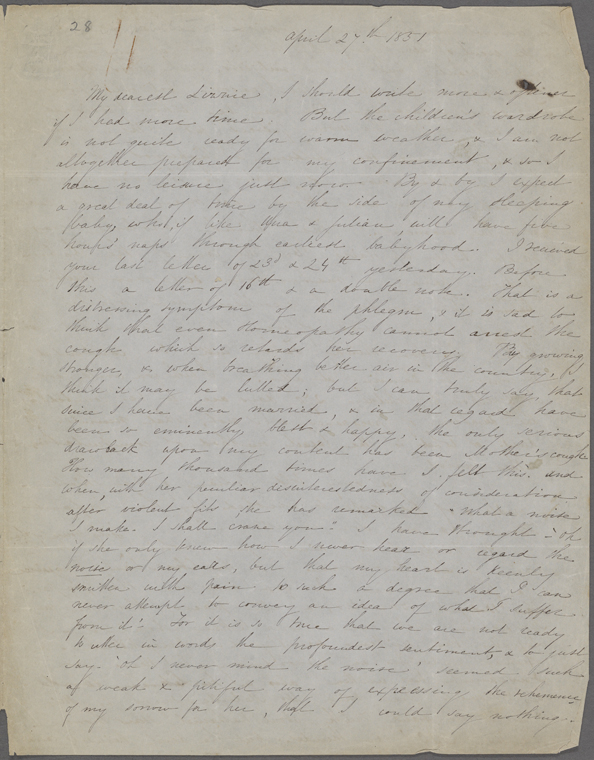 28
April 27th 1851
My dearest Lizzie, I should write more & oftener
if I had more time. But the children's wardrobe
is not quite ready for warm weather, & I am not
altogether prepared for my confinement, & so I
have no leisure just now. By & by I expect
a great deal of time by the side of my sleeping
baby, who, if like Una & Julian, will have five
hours' naps through earliest babyhood. I received
your last letter of 23d & 24th yesterday. Before
this a letter of 16th & a double note. That is a
distressing symptom of the phlegm, & it is sad to
think that even Homeopathy cannot arrest the
cough which so retards her recovery. By growing
stronger, & when breathing better air in the country, I
think it may be lulled; but I can truly say, that
since I have been married, & in that regard have
been so eminently blest & happy, the only serious
drawback upon my content has been Mother's cough
How many thousand times have I felt this. and
when, with her peculiar disinterestedness of consideration
after violent fits she has remarked "What a noise
I make. I shall craze you." I have thought - "oh
if she only knew how I never hear or regard the
noise or my ears, but that my heart is keenly
smitten with pain to such a degree that I can
never attempt to convey an idea of what I suffer
from it"- For it is so true that we are not ready
to utter in words the profoundest sentiment, & to just
say. 'oh I never mind the noise' seemed such
a weak & pitiful way of expressing the vehemence
of my sorrow for her, that I could say nothing..